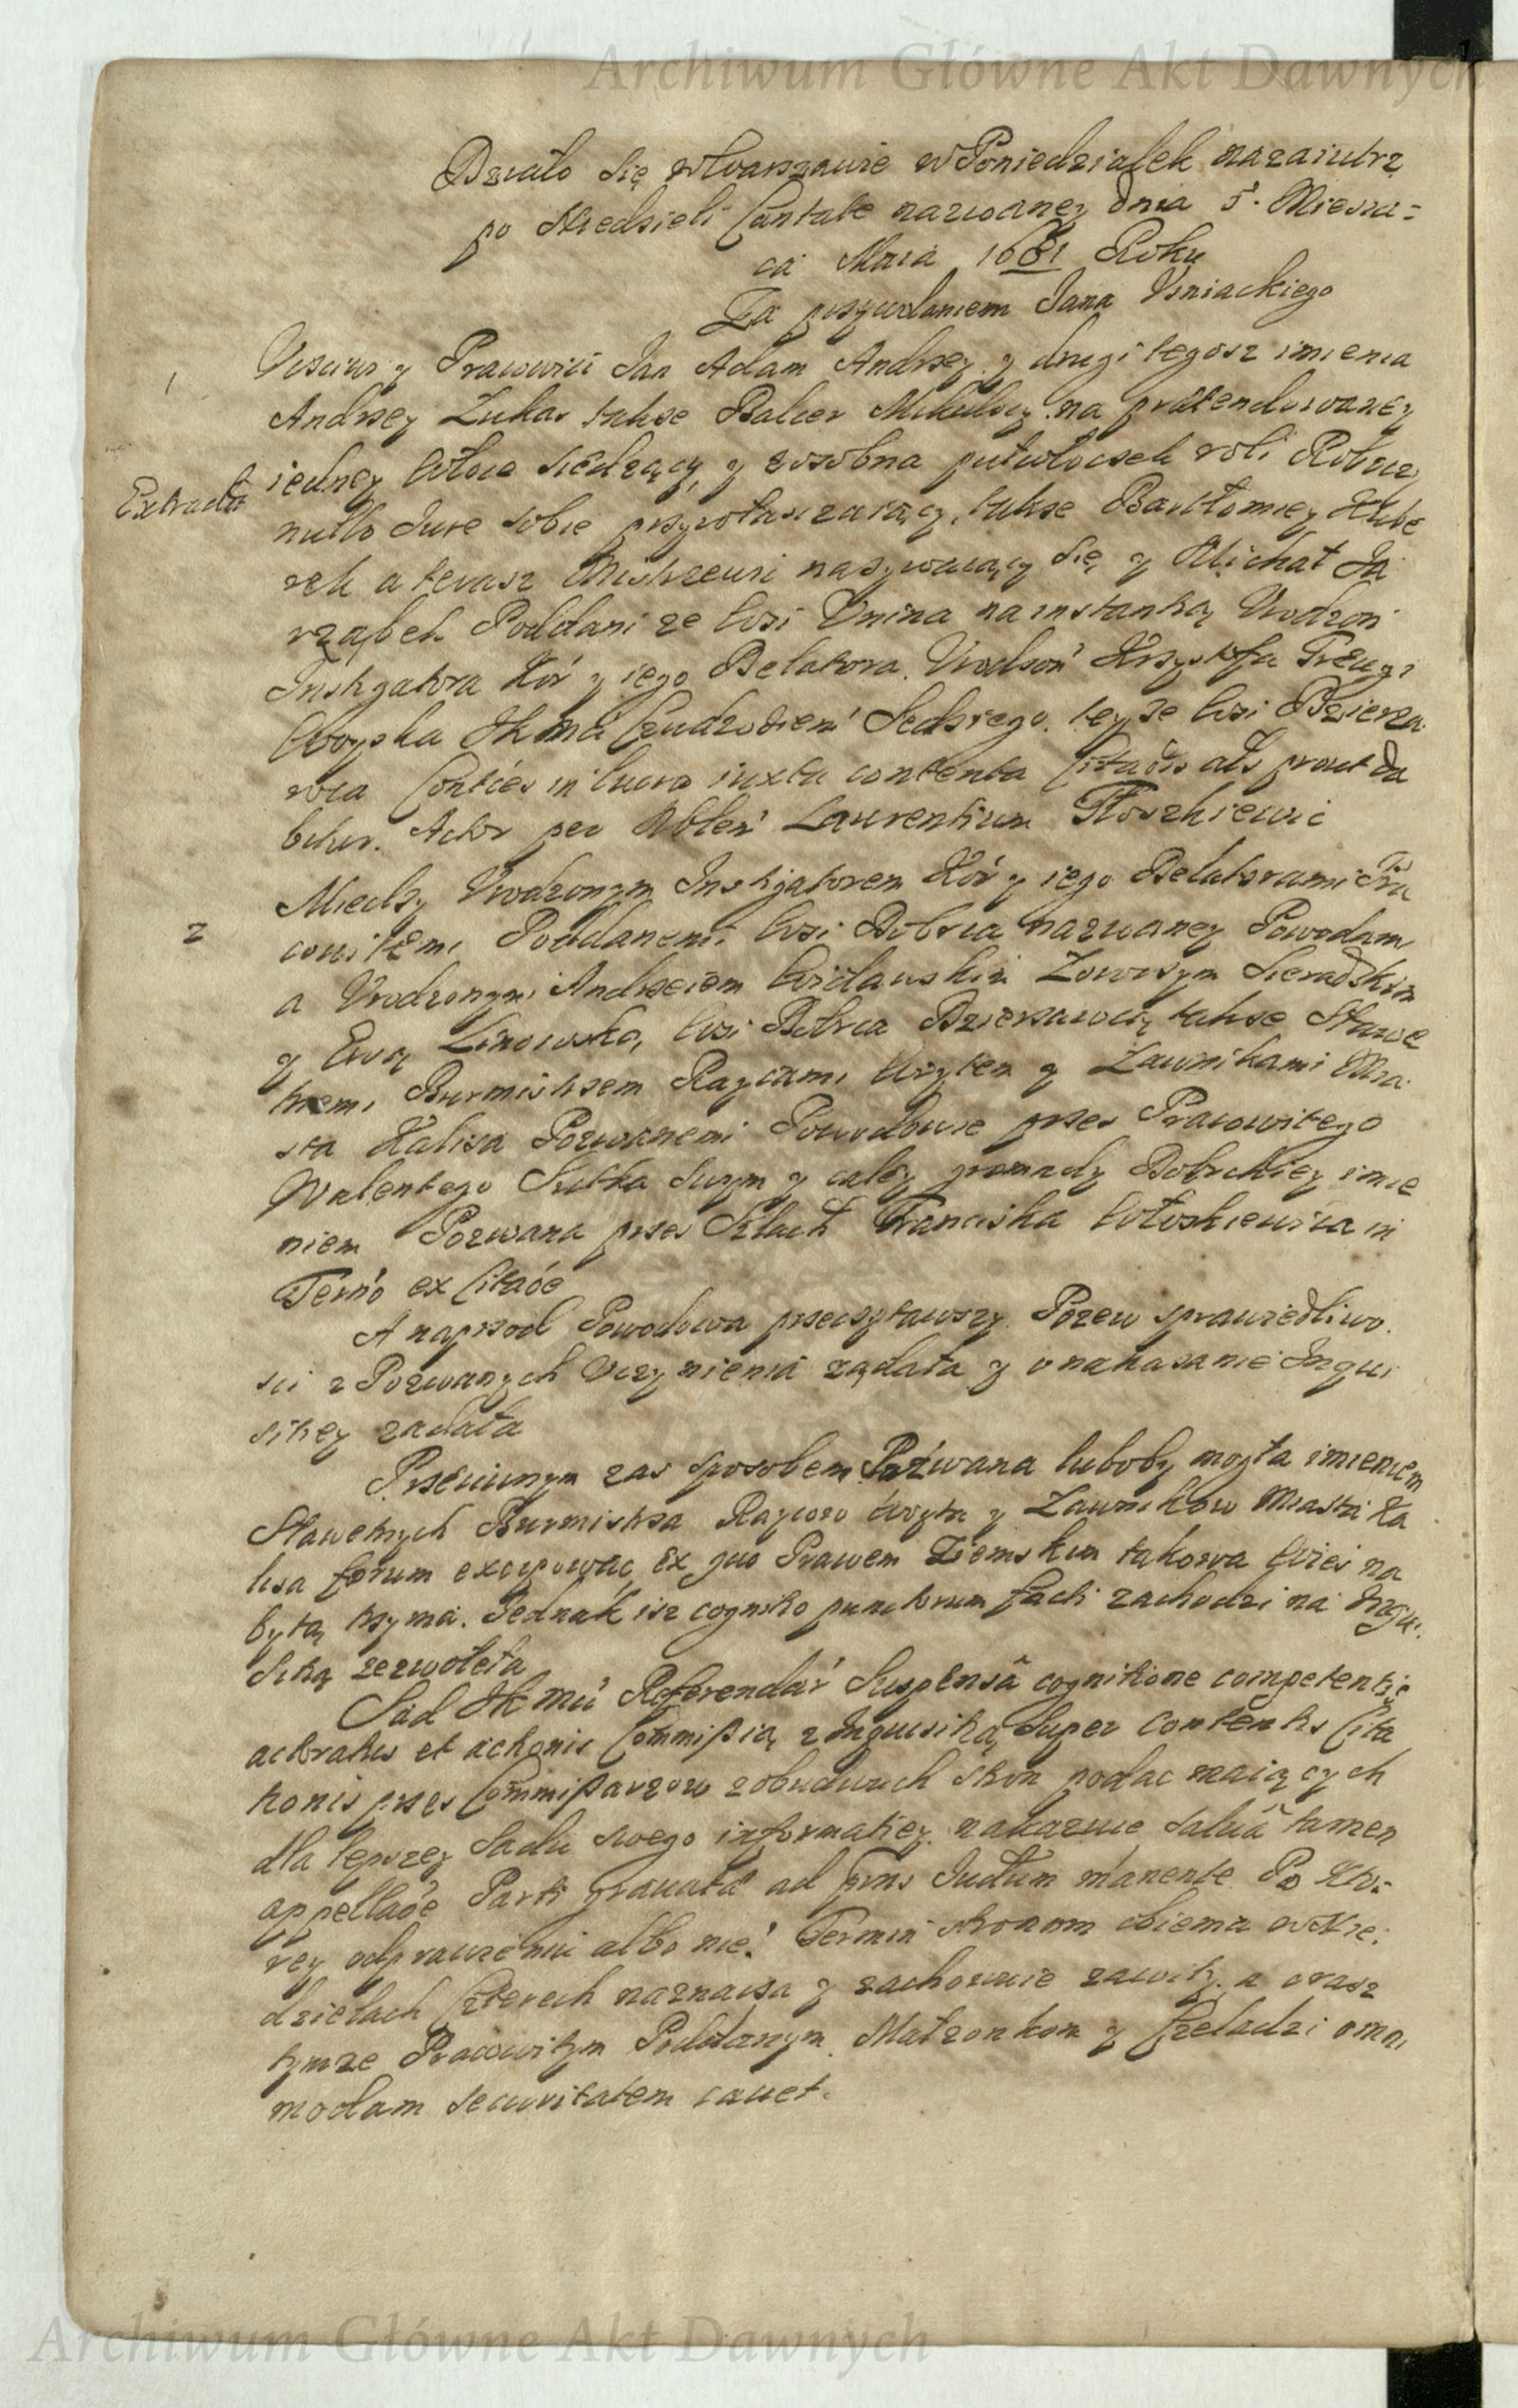 Archiwum Główne Akt Dawnych
1
Działo się w Warszawie w Poniedziałek nazaiutrz
po Niedzieli Cantate nazwaney dnia 5. Miesią=
ca Maia 1681 Roku
Za przywołaniem Jana Vzniackiego
1
y Pracowici Jan Adam Andrzey y drugi tegosz imienia
Andrzey Łukasz także Balcer na prætendowaney
iedney włoce siedzący, y zosobna pułwłoczek roli
Extradit
nullo Jure sobie przywłaszczaiący, także Bartłomiey
rek a terasz nazywaiący się y Michał Ja
rząbek Poddani ze wsi Vnina na instantią Vrodzon
Instigatora Kor y iego Delatora. Vrodzon Krzysztofa
Woyska JKMci Cudzoziem Sedzięgo. teyże wsi Dzierza
wca Conties in luero iuxta contenta Citaōis als prout da
bitur. Actor per Nblem Laurentium
2
Miedzy Vrodzonym Instigatorem Kor y iego Delatorami Pra
cowitemi Poddanemi wsi Dobrca nazwaney Powodami
a Vrodzonymi Andrzeiem Łowczym Sieradzkim
y Ewą Linowską wsi Dobrca Dzierzawcą, także Sławe
tnemi Burmistrzem Raycami Wuytem y Ławnikami Mia
sta Kalisza Pozwanemi Powodowie przez Pracowitego
Walentego swym y całey gromady Dobrckiey imie
niem Pozwana przez Szlach Franciszka Wołoskiewicza in
Termo ex Citaōe
A naprzod Powodowa przeczytawszy Pozew sprawiedliwo
sci z Pozwanych Vczynienia ządała y o nakazanie Inqui
sitiey ządała
Przeciwnym zas sposobem Pozwana luboby mogła imieniem
Sławetnych Burmistrza Raycow Woyta y Ławnikow Miasta Ka
lisza forum excypowac ex quo Prawem Ziemskim takowa wies na
bytą trzyma. Jednak isz cognitio punctorum facti zachodzi na Inqui
sitią zezwoleła
Sąd JKMci Referendar Suspensâ cognitione competentiæ
actoratus et actionis Commissią z Inquisitią Super contentis Cita
tionis przez Commissarzow zobudwuch stron podac maiących
dla lepszey Sądu swego informatiey nakazuie salvâ tamen
appellaōe Parti gravatæ ad prns Judium manente Po kto=
rey odprawieniu albo nie. Termin stronom obiema w Nie=
dzielach Czterech naznacza y zachowuie zawity. a orasz
tymze Pracowitym Poddanym. Małzonkom y Czeladzi omni
modam securitatem cavet.
Archiwum Główne Akt Dawnych